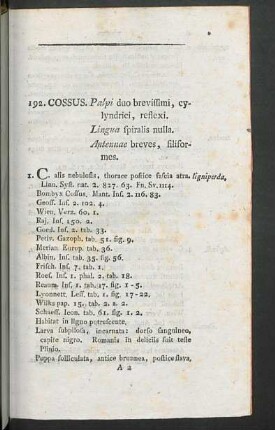 192. COSSUS. Palpi duo brevissimi, cy-
lyndrici, reflexi.
Lingua spiralis nulla.
Antennae breves, filifor-
mes.
1. C. alis nebulosis, thorace postice fascia atra. ligniperda,
Linn. Syst. nat. 2. 827. 63. Fn. Sv. 1114.
Bombyx Cossus, Mant. Inf. 2. 116. 83.
Geoff. Inf. 2. 102. 4.
Wien. Verz. 60. 1.
Raj. Inf. 150. 2.
Goed. Inf. 2. tab. 33.
Petiv. Gazoph. tab. 51. fig. 9.
Merian Europ. tab. 36.
Albin. Inf. tab. 35. fig. 56.
Frisch. Inf. 7. tab. 1.
Roes. Inf. 1. phal. 2. tab. 18.
Reaum. Inf. 1. tab. 17. fig. 1-5.
Lyonnett. Less. tab. 1. fig. 17-22.
Wilks pap. 15. tab. 2. 1. 2.
Schaeff. Icon. tab. 61. fig. 1. 2.
Habitat in ligno putrescente.
Larva subpilosa, incarnata: dorso sanguineo,
capite nigro. Romanis in deliciis fuit teste
Plinio.
Puppa folliculata, antice brunnea, postice flava,
A 2